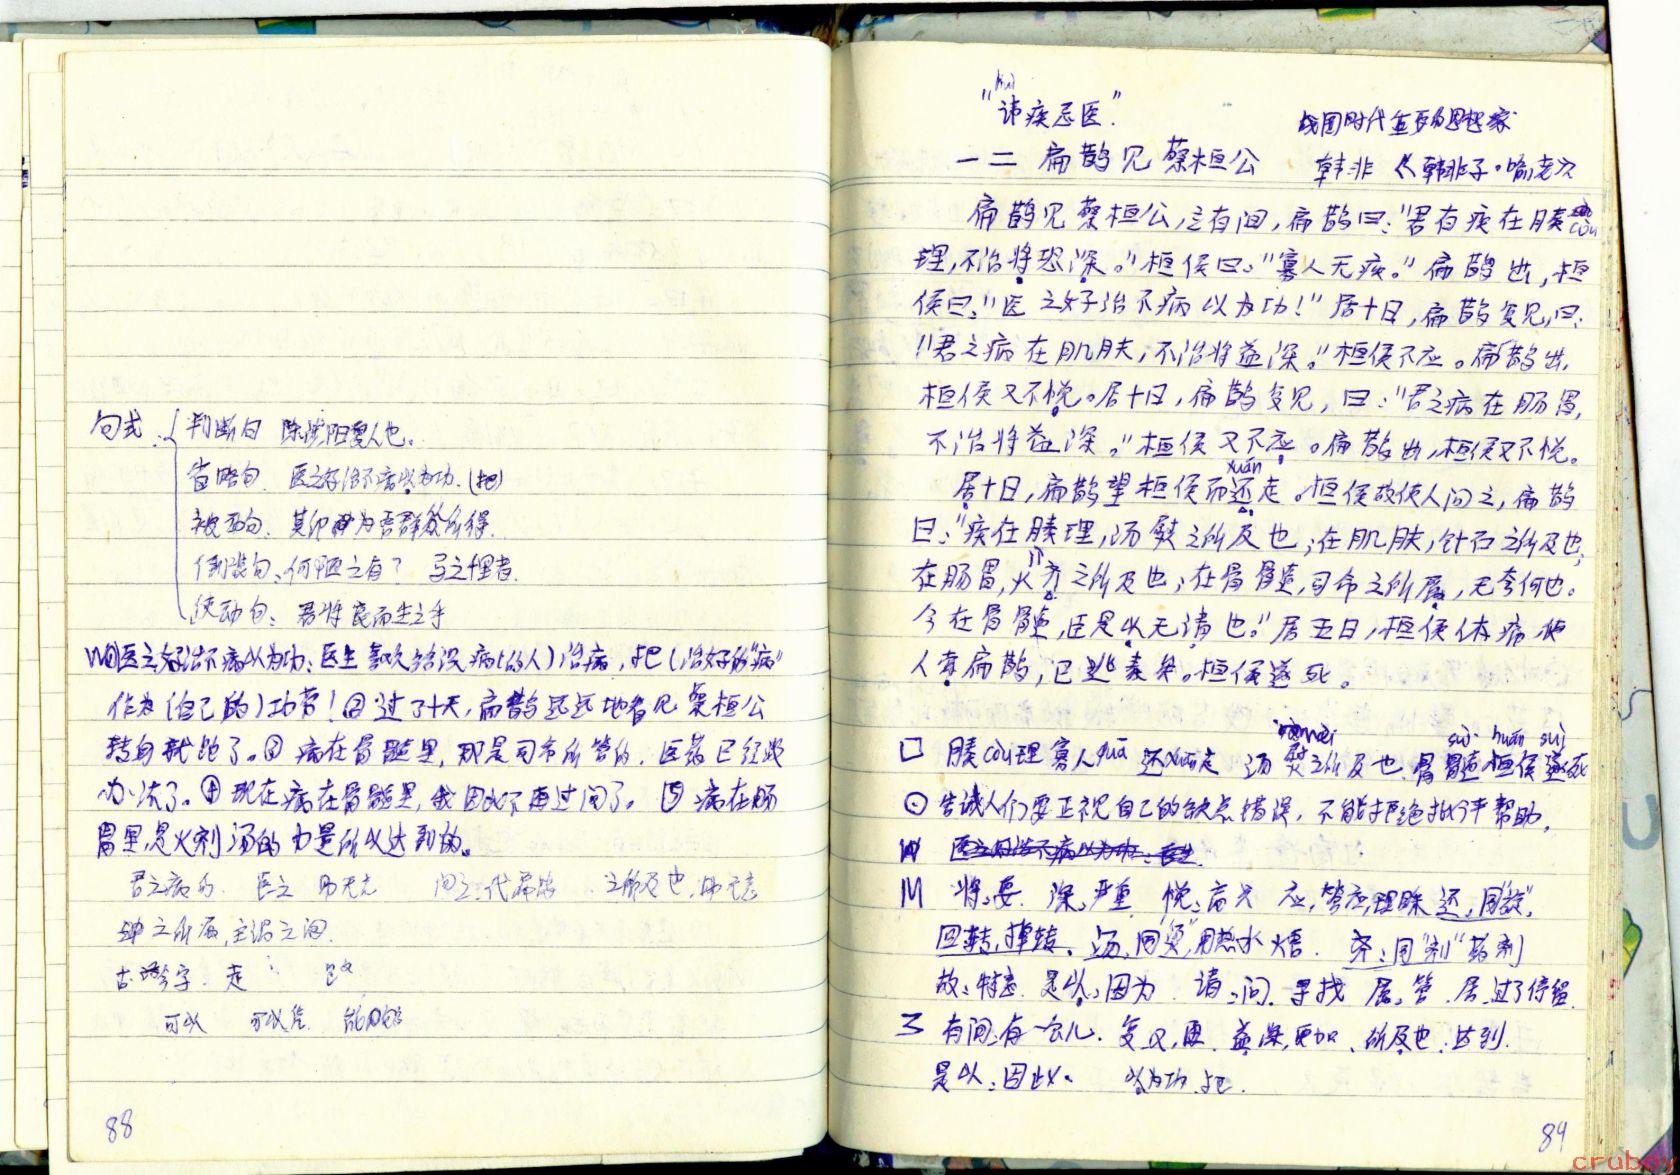 句式：判断句 陈涉阳夏人也。
省略句 医之好治不病以为功.(把)
被动句. 其印为群所得.
倒装句：何陋之有？ 马之千里者.
使动句：君将哀而生之乎
W①医之好治不病以为功：医生喜欢给没病(的人)治病，把(治好的"病"
作为(自己的)功劳！②过了十天，扁鹊远远地看见蔡桓公
转身就跑了。③病在骨髓里，那是司命所管的，医药已经
办法了。④现在病在骨髓里，我因此不再过问了。⑤病在肠
胃里，是火剂汤的力量所以达到的。
君之病的. 医之 问之，代扁鹊 之所及也，
之所属，主谓之间
古今字. 走
可以 可以凭 能够
88
huì
"讳疾忌医"
战国时代 思想家
一二 扁鹊见蔡桓公 韩非 《韩非子·喻老》
扁鹊见蔡桓公，立有间，扁鹊曰："君有疾在腠còu
理，不治将恐深。"桓侯曰："寡人无疾。"扁鹊出，桓
侯曰："医之好治不病以为功！"居十日，扁鹊复见，曰：
"君之病在肌肤，不治将益深。"桓侯不应。扁鹊出，
桓侯又不悦。居十日，扁鹊复见，曰："君之病在肠胃，
不治将益深。"桓侯又不应。扁鹊出，桓侯又不悦。
xuán
居十日，扁鹊望桓侯而还走。桓侯故使人问之，扁鹊
曰："疾在腠理，汤熨之所及也；在肌肤，针石之所及也；
在肠胃，火齐之所及也；在骨髓，司命之所属，无奈何也。
今在骨髓，臣是以无请也。"居五日，桓侯体痛使
人索扁鹊，已逃秦矣。桓侯遂死。
wèi suǐ huán suì
口 腠còu理 寡人guǎ 还xuán走 汤熨之所及也 骨髓 桓侯遂死
⊙ 告诫人们要正视自己的缺点错误，不能拒绝批评帮助。
W 医之好治不病以为功：医生
M 将：要 深：严重 悦：高兴 应，答应，理睬 还，同"旋"，
回转，掉转。汤，同"烫"，用热水焐. 齐：同"剂" 药剂
故：特意 是以：因为 请：问 寻找 属：管 居：过了停留
又 有间：有一会儿. 复又，再. 益深，更加. 所及也：达到.
是以：因此. 以为功 把.
89